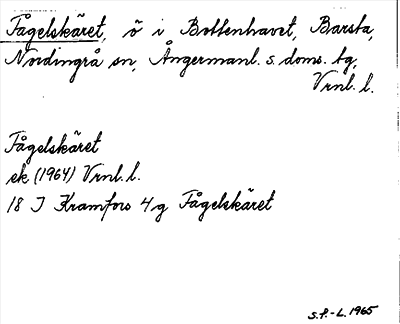 Fågelskäret, ö i Bottenhavet, Barsta,
Nordingrå sn, Ångermanl. s. doms. tg,
Vrnl. l.
Fågelskäret
ek (1964) Vrnl. l.
18 J Kramfors 4 g Fågelskäret
S.F.-L. 1965